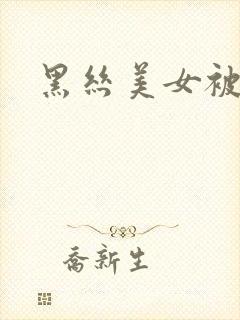 黑丝美女被
乔新生